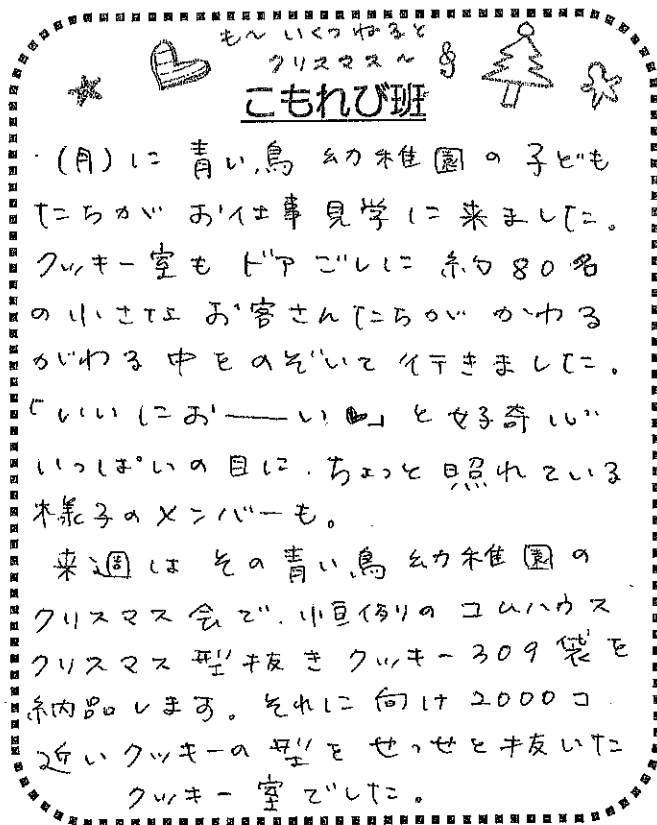 も〜いくつねると
クリスマス〜
こもれび班
・(月)に青い鳥幼稚園の子ども
たちがお仕事見学に来ました。
クッキー室もドアごしに約80名
の小さなお客さんたちがかわる
がわる中をのぞいて行きました。
「いいにお――い♥」と好奇心
いっぱいの目に、ちょっと照れている
様子のメンバーも。
来週はその青い鳥幼稚園の
クリスマス会で、恒例のコムハウス
クリスマス型抜きクッキー309袋を
納品します。それに向け2000コ
近いクッキーの型をせっせと抜いた
クッキー室でした。